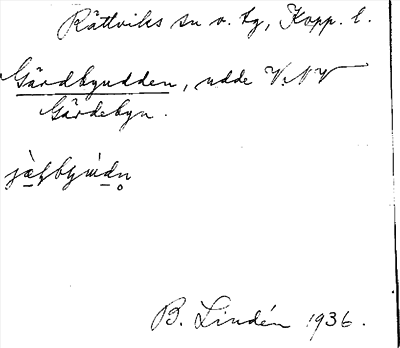 Rättviks sn o. tg, Kopp. l.
Gärdbyudden, udde V.NV
Gärdebyn.
B. Lindén 1936.